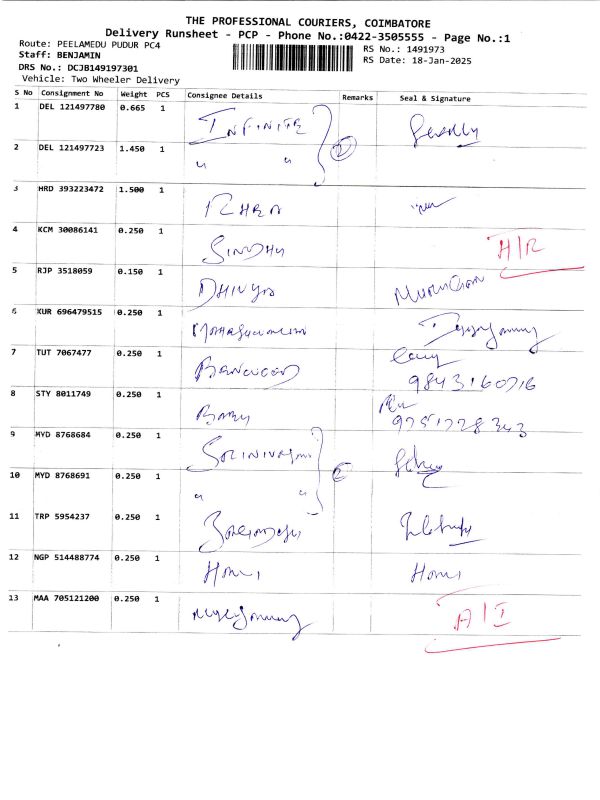 THE PROFESSIONAL COURIERS, COIMBATORE
Delivery Runsheet - PCP - Phone No.:0422-3505555 - Page No.:1
Route: PEELAMEDU PUDUR PC4
RS No.: 1491973
Staff: BENJAMIN
RS Date: 18-Jan-2025
DRS No.: DCJB149197301
Vehicle: Two Wheeler Delivery
S No Consignment No Weight PCS Consignee Details Remarks Seal & Signature
1 DEL 121497780 0.665 1 INFINITE
2 DEL 121497723 1.450 1 " " 2
3 HRD 393223472 1.500 1
4 KCM 30086141 0.250 1 SINDHU H/R
5 RJP 3518059 0.150 1 DHIVYA
6 KUR 696479515 0.250 1
7 TUT 7067477 0.250 1
9843160716
8 STY 8011749 0.250 1 BABU
9751728343
9 MYD 8768684 0.250 1
10 MYD 8768691 0.250 1 " " 2
11 TRP 5954237 0.250 1
12 NGP 514488774 0.250 1
13 MAA 705121200 0.250 1 A/I